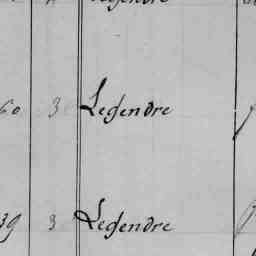 Legendre
60 3 Legendre
39 3 Legendre